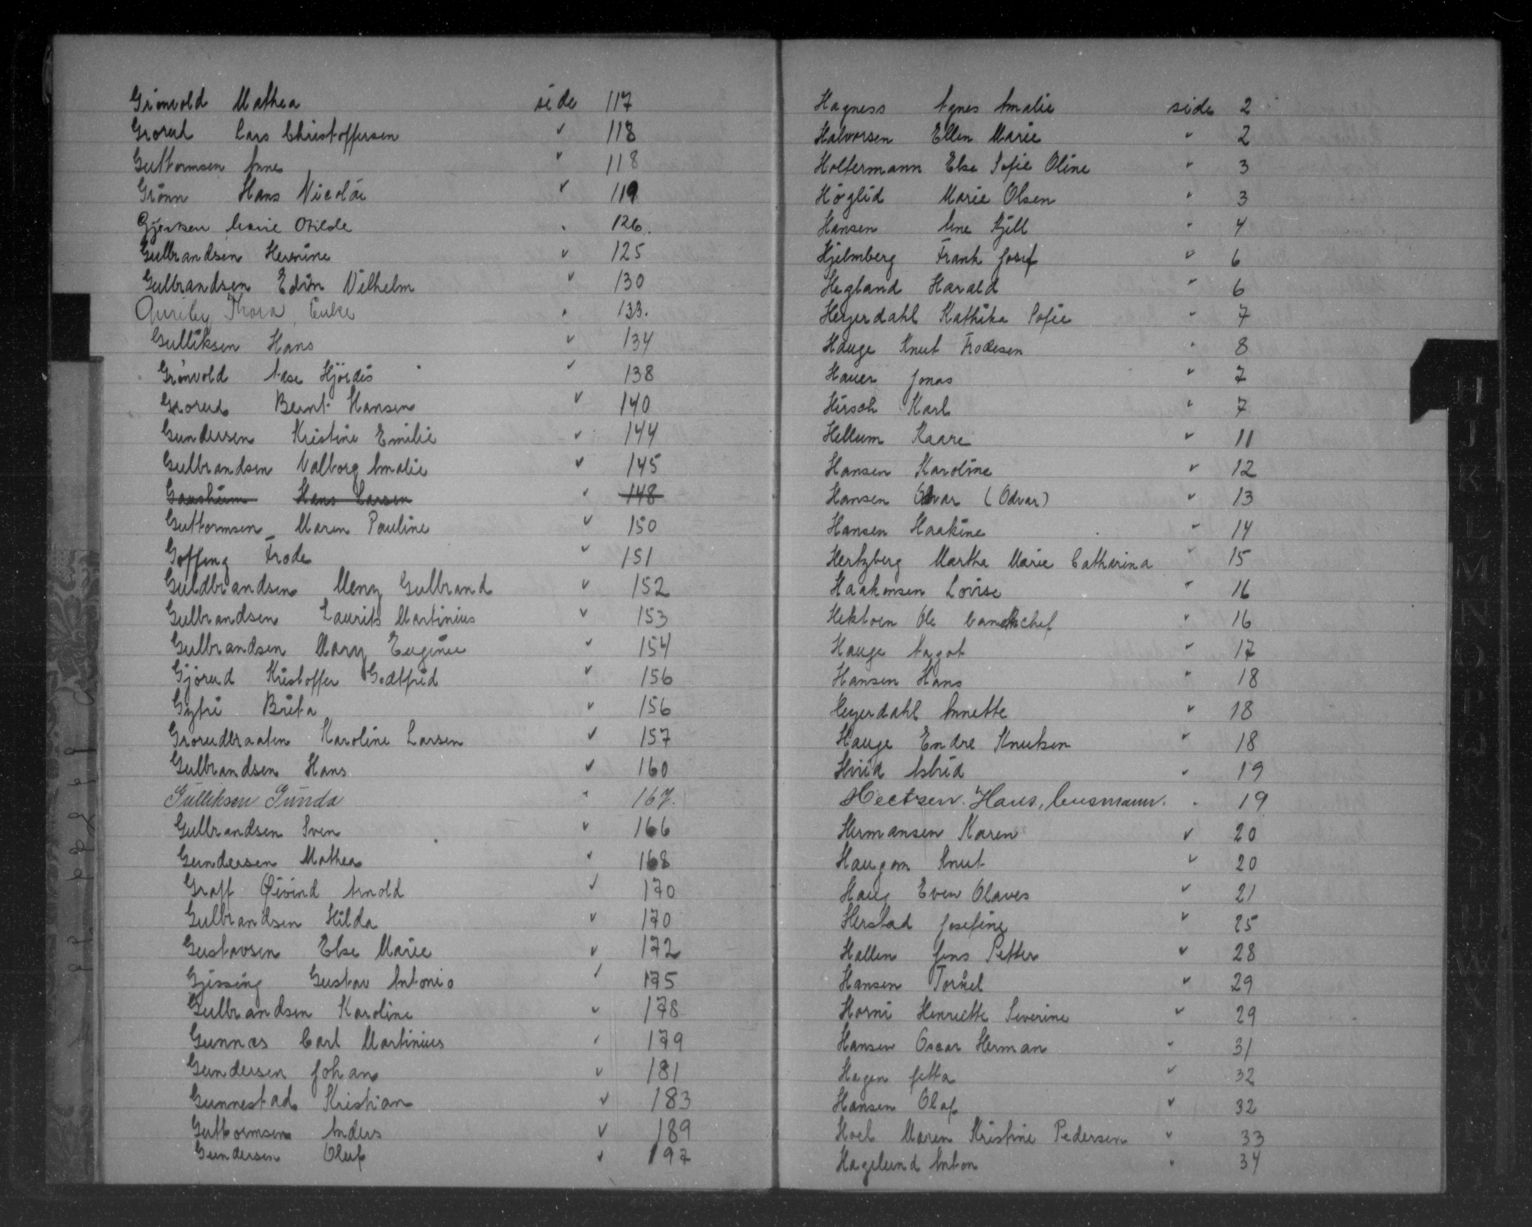 Grönvold Mathea side 117
Grorud Lars Christoffersen " 118
Guttormsen Anne " 118
Grönn Hans Nicolai " 119
Otilde " 126.
Gulbrandsen Hermine " 125
Gulbrandsen Edvin Vilhelm " 130
Thora, Enke " 133.
Gulliksen Hans " 134
Grönvold Aase Hjördis " 138
Grorud Bernt Hansen " 140
Gundersen Kristine Emilie " 144
Gulbrandsen Valborg Amalie " 145
Hans Larsen " 148
Guttormsen Maren Pauline " 150
Goffeng Frode " 151
Guldbrandsen Meny Gulbrand " 152
Gulbrandsen Laurits Martinius " 153
Gulbrandsen Mary Eugenie " 154
Gjörud Kristoffer Godtfred " 156
Gytri Brita " 156
Groruderaaten Karoline Larsen " 157
Gulbrandsen Hans " 160
Gulliksen Gunda " 167.
Gulbrandsen Sven " 166
Gundersen Mathea " 168
Graff Øivind Arnold " 170
Gulbrandsen Hilda " 170
Gustavsen Else Marie " 172
Gjessing Gustav Antonio " 175
Gulbrandsen Karoline " 178
Gunnæs Carl Martinius " 179
Gundersen Johan " 181
Gunnestad Kristian " 183
Guttormsen Anders " 189
Gundersen Oluf " 197
Hagness Agnes Amalie side 2
Halvorsen Ellen Marie " 2
Holtermann Else Sofie Oline " 3
Höglid Marie Olsen " 3
Hansen Ane Kjell " 4
Hjelmberg Frank Josef " 6
Hegland Harald " 6
Heyerdahl Kathika Sofie " 7
Hauge Knut Frodesen " 8
Hauer Jonas " 7
Hirsch Karl " 7
Hellum Kaare " 11
Hansen Karoline " 12
Hansen (Odvar) " 13
Hansen Haakine " 14
Hertzberg Martha Marie Catharina " 15
Haakonsen Lovise " 16
Hektoen Ole " 16
Hauge Aagot " 17
Hansen Hans " 18
Heyerdahl Annette " 18
Hauge Endre Knutsen " 18
Hviid Astrid " 19
Hans, " 19
Hermansen Karen " 20
Haugom Knut " 20
Haug Even Olaves " 21
Herstad Josefine " 25
Hallen Jens Petter " 28
Hansen Torkel " 29
Horni Henriette Severine " 29
Hansen Oscar Herman " 31
Hagen Jetta " 32
Hansen Olaf " 32
Hoel Maren Kristine Pedersen " 33
Hagelund Anton " 34
H
J
K
L
M
N
O
P
Q
R
S
T